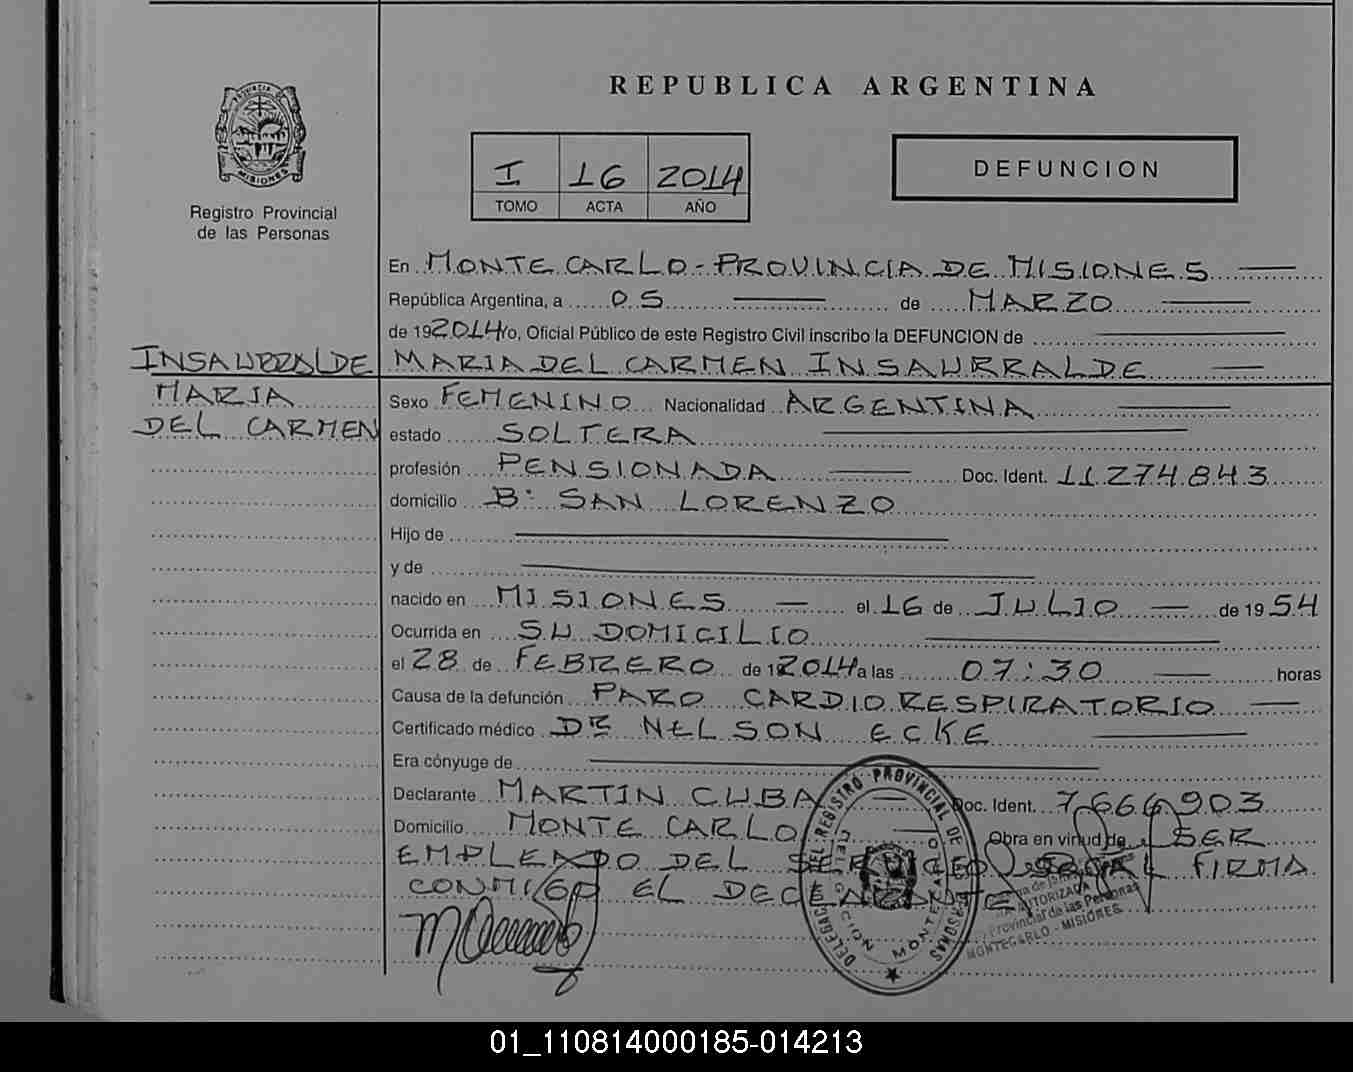 REPUBLICA ARGENTINA
PROVINCIA DE
MISIONES
Registro Provincial
de las Personas
I 16 2014
TOMO ACTA AÑO
DEFUNCION
En MONTE CARLO - PROVINCIA DE MISIONES
República Argentina, a 05 de MARZO
de 19 2014 Yo, Oficial Público de este Registro Civil inscribo la DEFUNCION de
INSAURRALDE MARIA DEL CARMEN INSAURRALDE
MARIA
DEL CARMEN
Sexo FEMENINO Nacionalidad ARGENTINA
estado SOLTERA
profesión PENSIONADA Doc. Ident. 11.274.843
domicilio B: SAN LORENZO
Hijo de
y de
nacido en MISIONES el 16 de JULIO de 19 54
Ocurrida en SU DOMICILIO
el 28 de FEBRERO de 1 2014 a las 07:30 horas
Causa de la defunción PARO CARDIORESPIRATORIO
Certificado médico Dr NELSON ECKE
Era cónyuge de
Declarante MARTIN CUBA Doc. Ident. 7.666.903
Domicilio MONTE CARLO Obra en virtud de SER
EMPLEADO DEL SERVICIO FIRMA
CONMIGO EL DECLARANTE
DELEGACION DEL REGISTRO PROVINCIAL DE PERSONAS
MONTECARLO
AUTORIZADA
Provincial de las Personas
MONTECARLO - MISIONES
01_110814000185-014213